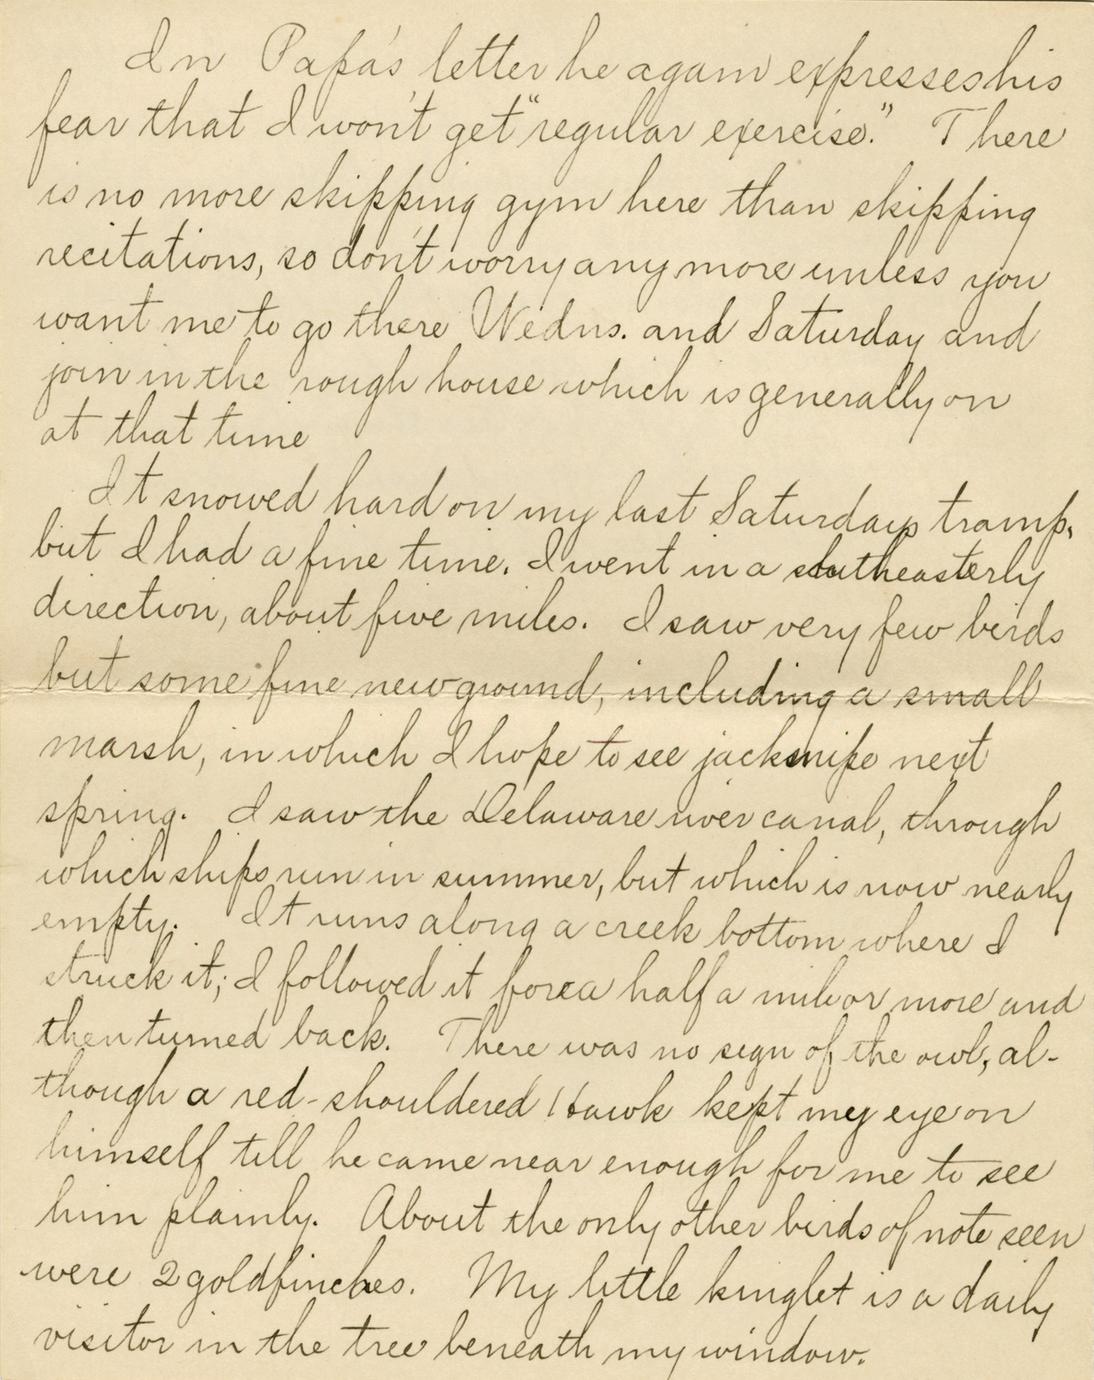 In Papa's letter he again expresses his
fear that I won't get "regular exercise." There
is no more skipping gym here than skipping
recitations, so don't worry any more unless you
want me to go there Wedns. and Saturday and
join in the rough house which is generally on
at that time
It snowed hard on my last Saturdays tramp,
but I had a fine time. I went in a southeasterly
direction, about five miles. I saw very few birds
but some fine new ground, including a small
marsh, in which I hope to see jacksnipe next
spring. I saw the Delaware river canal, through
which ships run in summer, but which is now nearly
empty. It runs along a creek bottom where I
struck it; I followed it for a half a mile or more and
then turned back. There was no sign of the owl, al-
though a red-shouldered Hawk kept my eye on
himself till he came near enough for me to see
him plainly. About the only other birds of note seen
were 2 goldfinches. My little kinglet is a daily
visitor in the tree beneath my window.